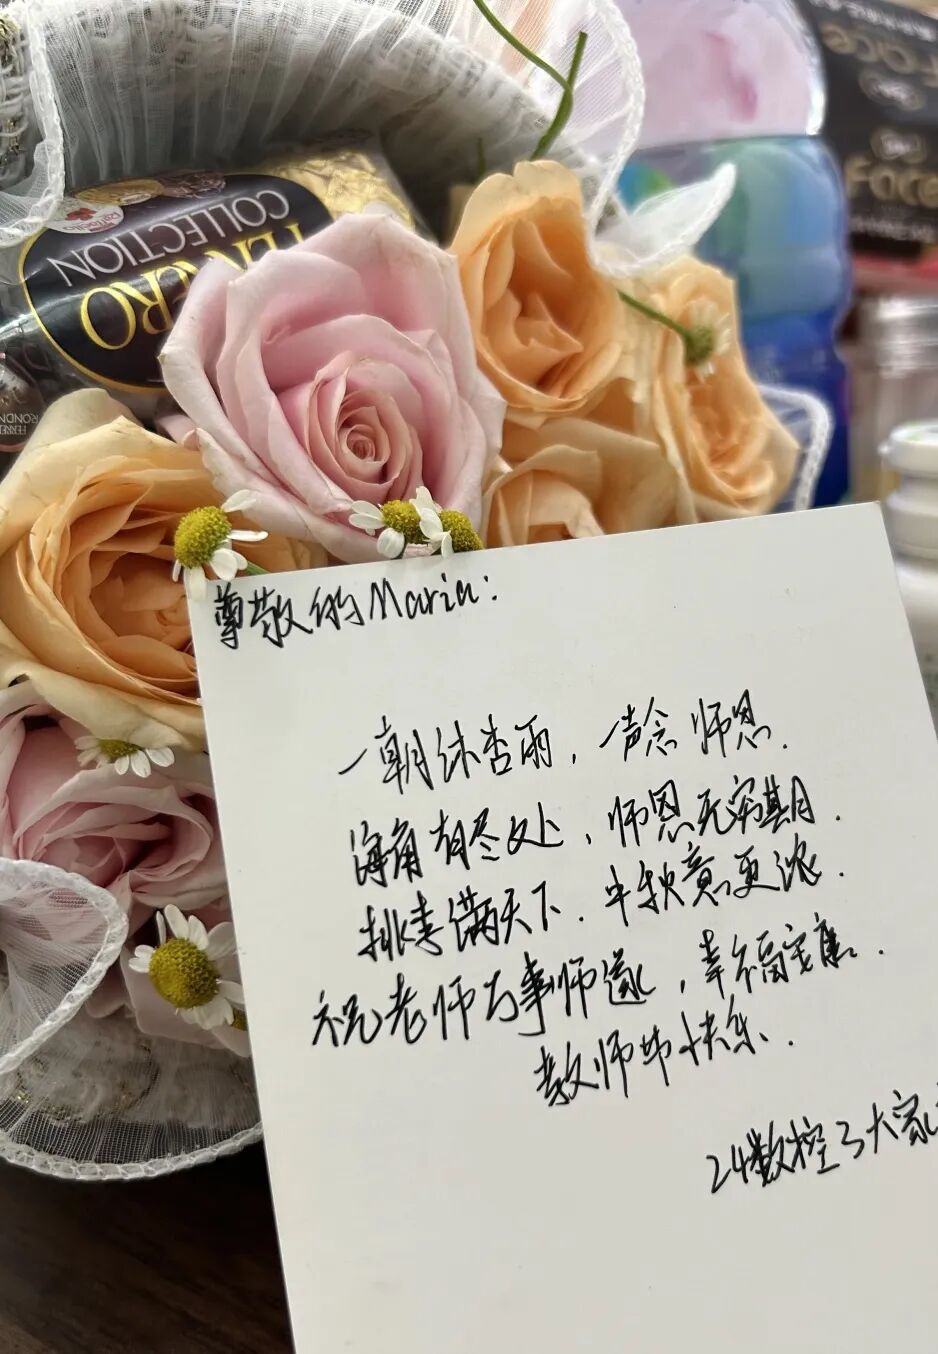 FERRERO
COLLECTION
Raffaello
Face
Face
尊敬的Maria:
一朝沐杏雨，一声念师恩.
海角有尽处，师恩无穷期.
桃李满天下.中秋意更浓.
祝老师万事师遂，幸福安康.
教师节快乐.
24数控3大家